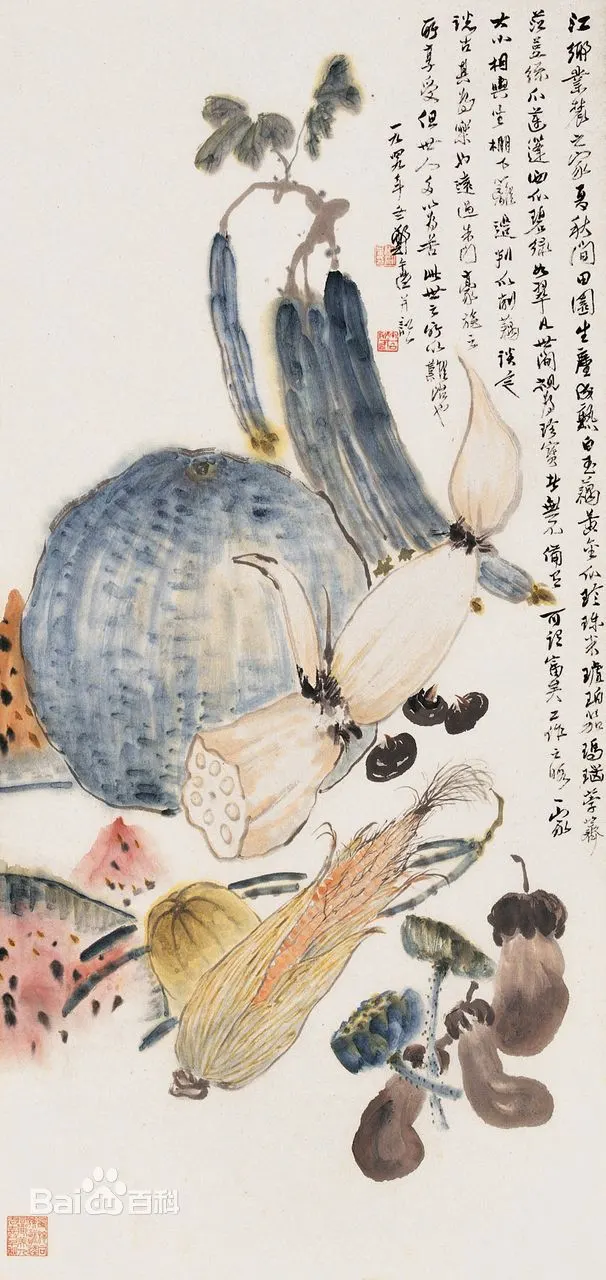 江鄉業農之家夏秋間田園生產成熟白玉藕黃金瓜珍珠米琥珀茄瑪瑙荸薺
荳絲瓜蓮蓬西瓜碧綠如翠凡世間視為珍寶者無不備有可謂富矣工作之餘一家
大小相與坐棚下籬邊判瓜削藕談今
說古其為樂也遠過朱門豪族之
所享受但世人多以為苦此世之所以難治也
一九年鄭并記
Bai百科